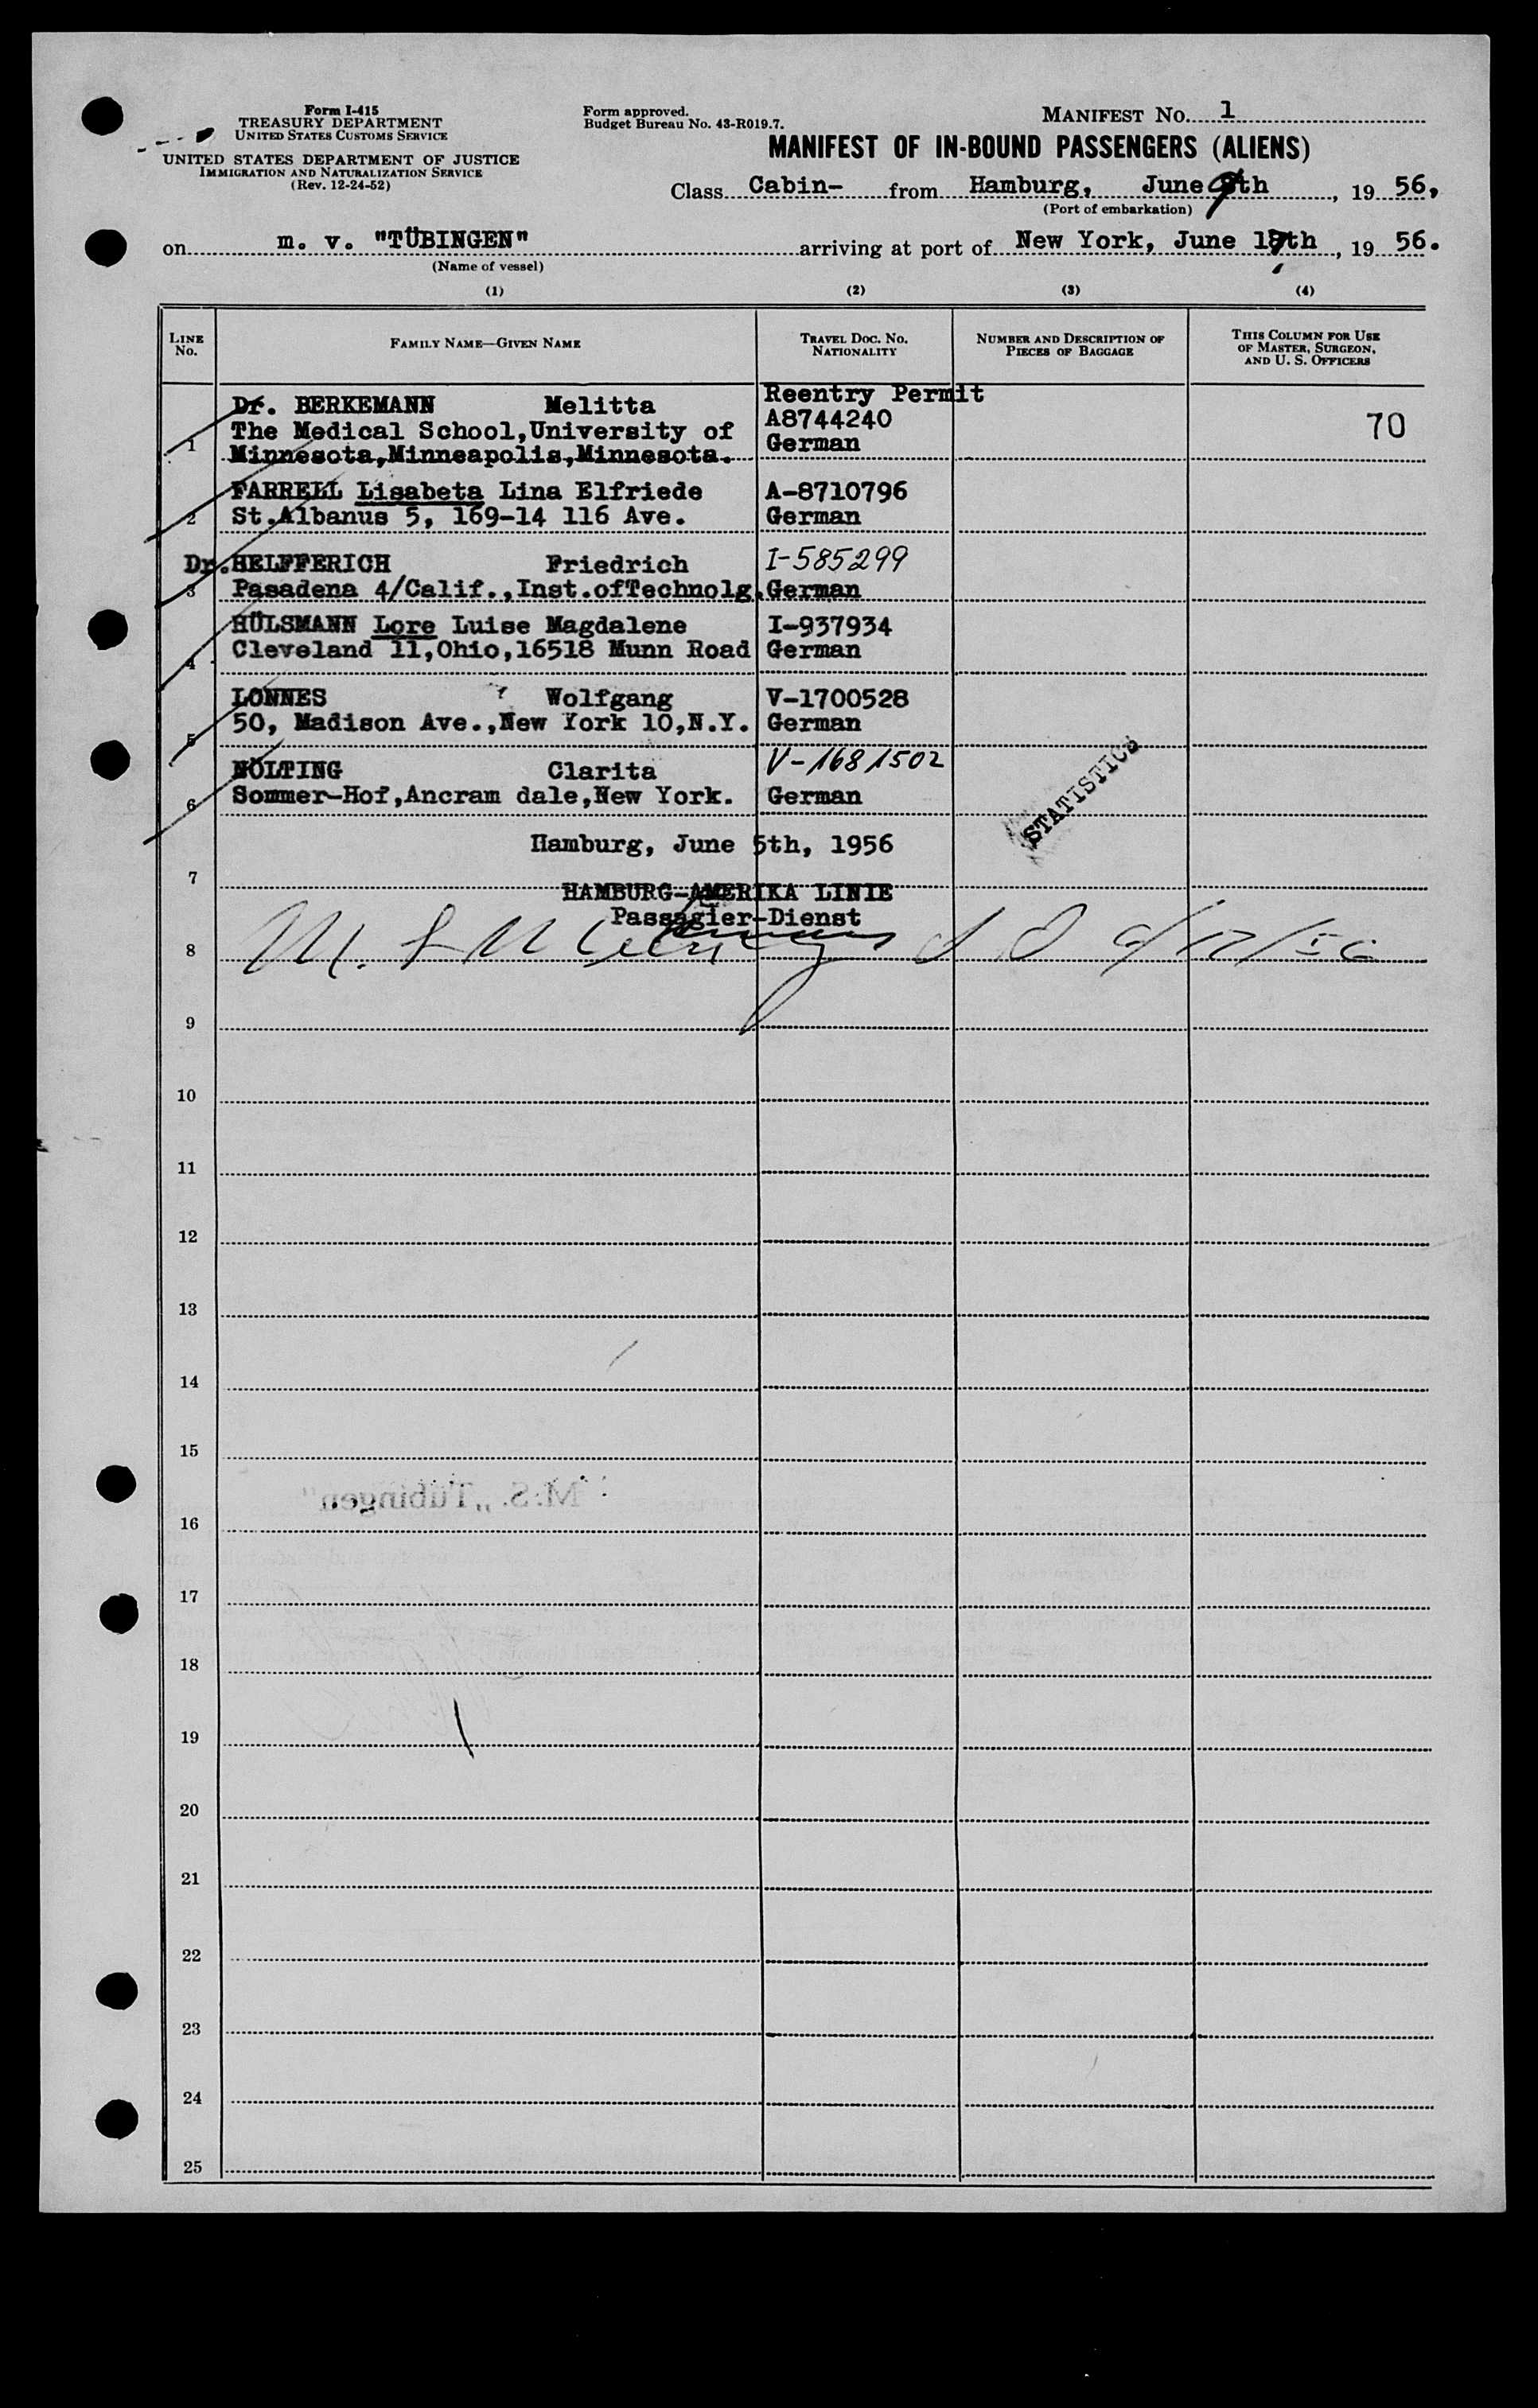 Form I-415
TREASURY DEPARTMENT
UNITED STATES CUSTOMS SERVICE
UNITED STATES DEPARTMENT OF JUSTICE
IMMIGRATION AND NATURALIZATION SERVICE
(Rev. 12-24-52)
Form approved.
Budget Bureau No. 43-R019.7.
MANIFEST NO. 1
MANIFEST OF IN-BOUND PASSENGERS (ALIENS)
Class Cabin- from Hamburg, June 9th, 19 56,
(Port of embarkation)
on m. v. "TÜBINGEN" arriving at port of New York, June 17th, 19 56.
(Name of vessel)
(1) (2) (3) (4)
LINE No. FAMILY NAME—GIVEN NAME TRAVEL DOC. NO. NATIONALITY NUMBER AND DESCRIPTION OF PIECES OF BAGGAGE THIS COLUMN FOR USE OF MASTER, SURGEON, AND U. S. OFFICERS
Reentry Permit
Dr. BERKEMANN Melitta A8744240 70
1 The Medical School,University of German
Minnesota,Minneapolis,Minnesota.
FARRELL Lisabeta Lina Elfriede A-8710796
2 St.Albanus 5, 169-14 116 Ave. German
Dr.HELFFERICH Friedrich I-585299
3 Pasadena 4/Calif.,Inst.ofTechnolg. German
HÜLSMANN Lore Luise Magdalene I-937934
4 Cleveland 11,Ohio,16518 Munn Road German
LONNES Wolfgang V-1700528
5 50, Madison Ave.,New York 10,N.Y. German
NOLTING Clarita V-1681502
6 Sommer-Hof,Ancram dale,New York. German
STATISTICS
Hamburg, June 5th, 1956
7
HAMBURG-AMERIKA LINIE
Passagier-Dienst
8 6/17/56
9
10
11
12
13
14
15
M.S. „Tübingen"
16
17
18
19
20
21
22
23
24
25